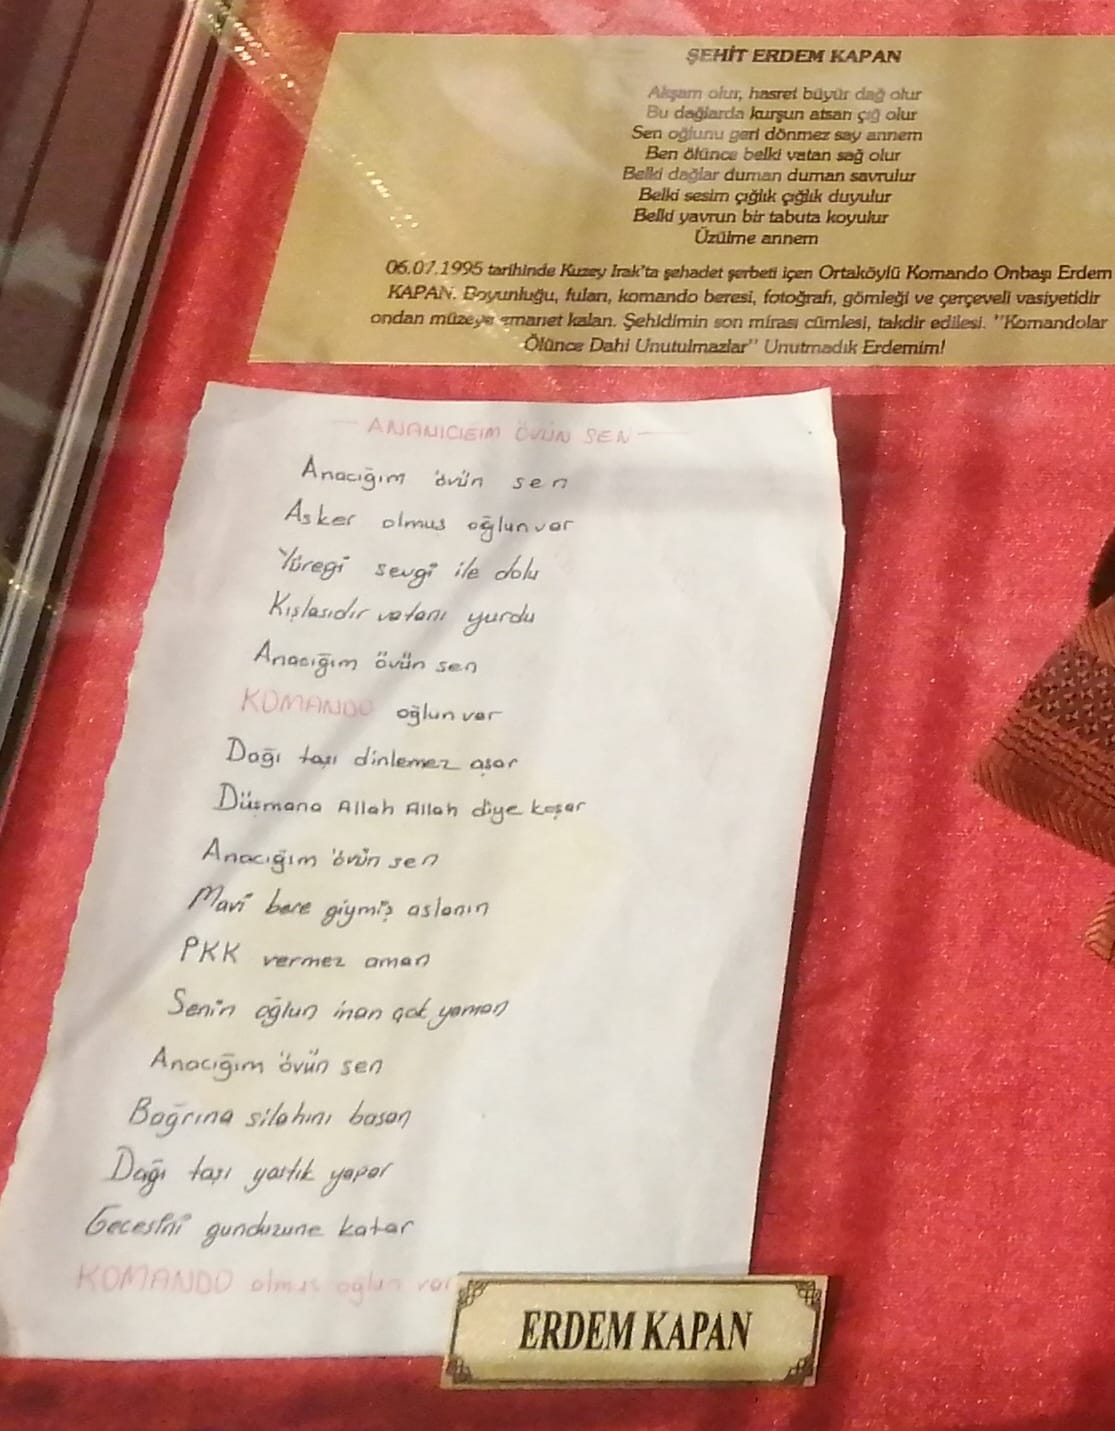 ŞEHİT ERDEM KAPAN
Akşam olur, hasret büyür dağ olur
Bu dağlarda kurşun atsan çığ olur
Sen oğlunu geri dönmez say annem
Ben ölünce belki vatan sağ olur
Belki dağlar duman duman savrulur
Belki sesim çığlık çığlık duyulur
Belki yavrun bir tabuta koyulur
Üzülme annem
06.07.1995 tarihinde Kuzey Irak'ta şehadet şerbeti içen Ortaköylü Komando Onbaşı Erdem
KAPAN. Boyunluğu, fuları, komando beresi, fotoğrafı, gömleği ve çerçeveli vasiyetidir
ondan müzeye emanet kalan. Şehidimin son mirası cümlesi, takdir edilesi. "Komandolar
Ölünce Dahi Unutulmazlar" Unutmadık Erdemim!
ANANICIĞIM ÖVÜN SEN
Anacığım övün sen
Asker olmus oğlun var
Yüregi sevgi ile dolu
Kışlasıdır vatanı yurdu
Anacığım övün sen
KOMANDO oğlun var
Dağı taşı dinlemez aşar
Düşmana Allah Allah diye koşar
Anacığım övün sen
Mavi bere giymiş aslanın
PKK vermez aman
Senin oğlun inan çok yaman
Anacığım övün sen
Bağrına silahını basan
Dağı taşı yastık yapar
Gecesini gunduzune katar
KOMANDO olmus oglun var
ERDEM KAPAN